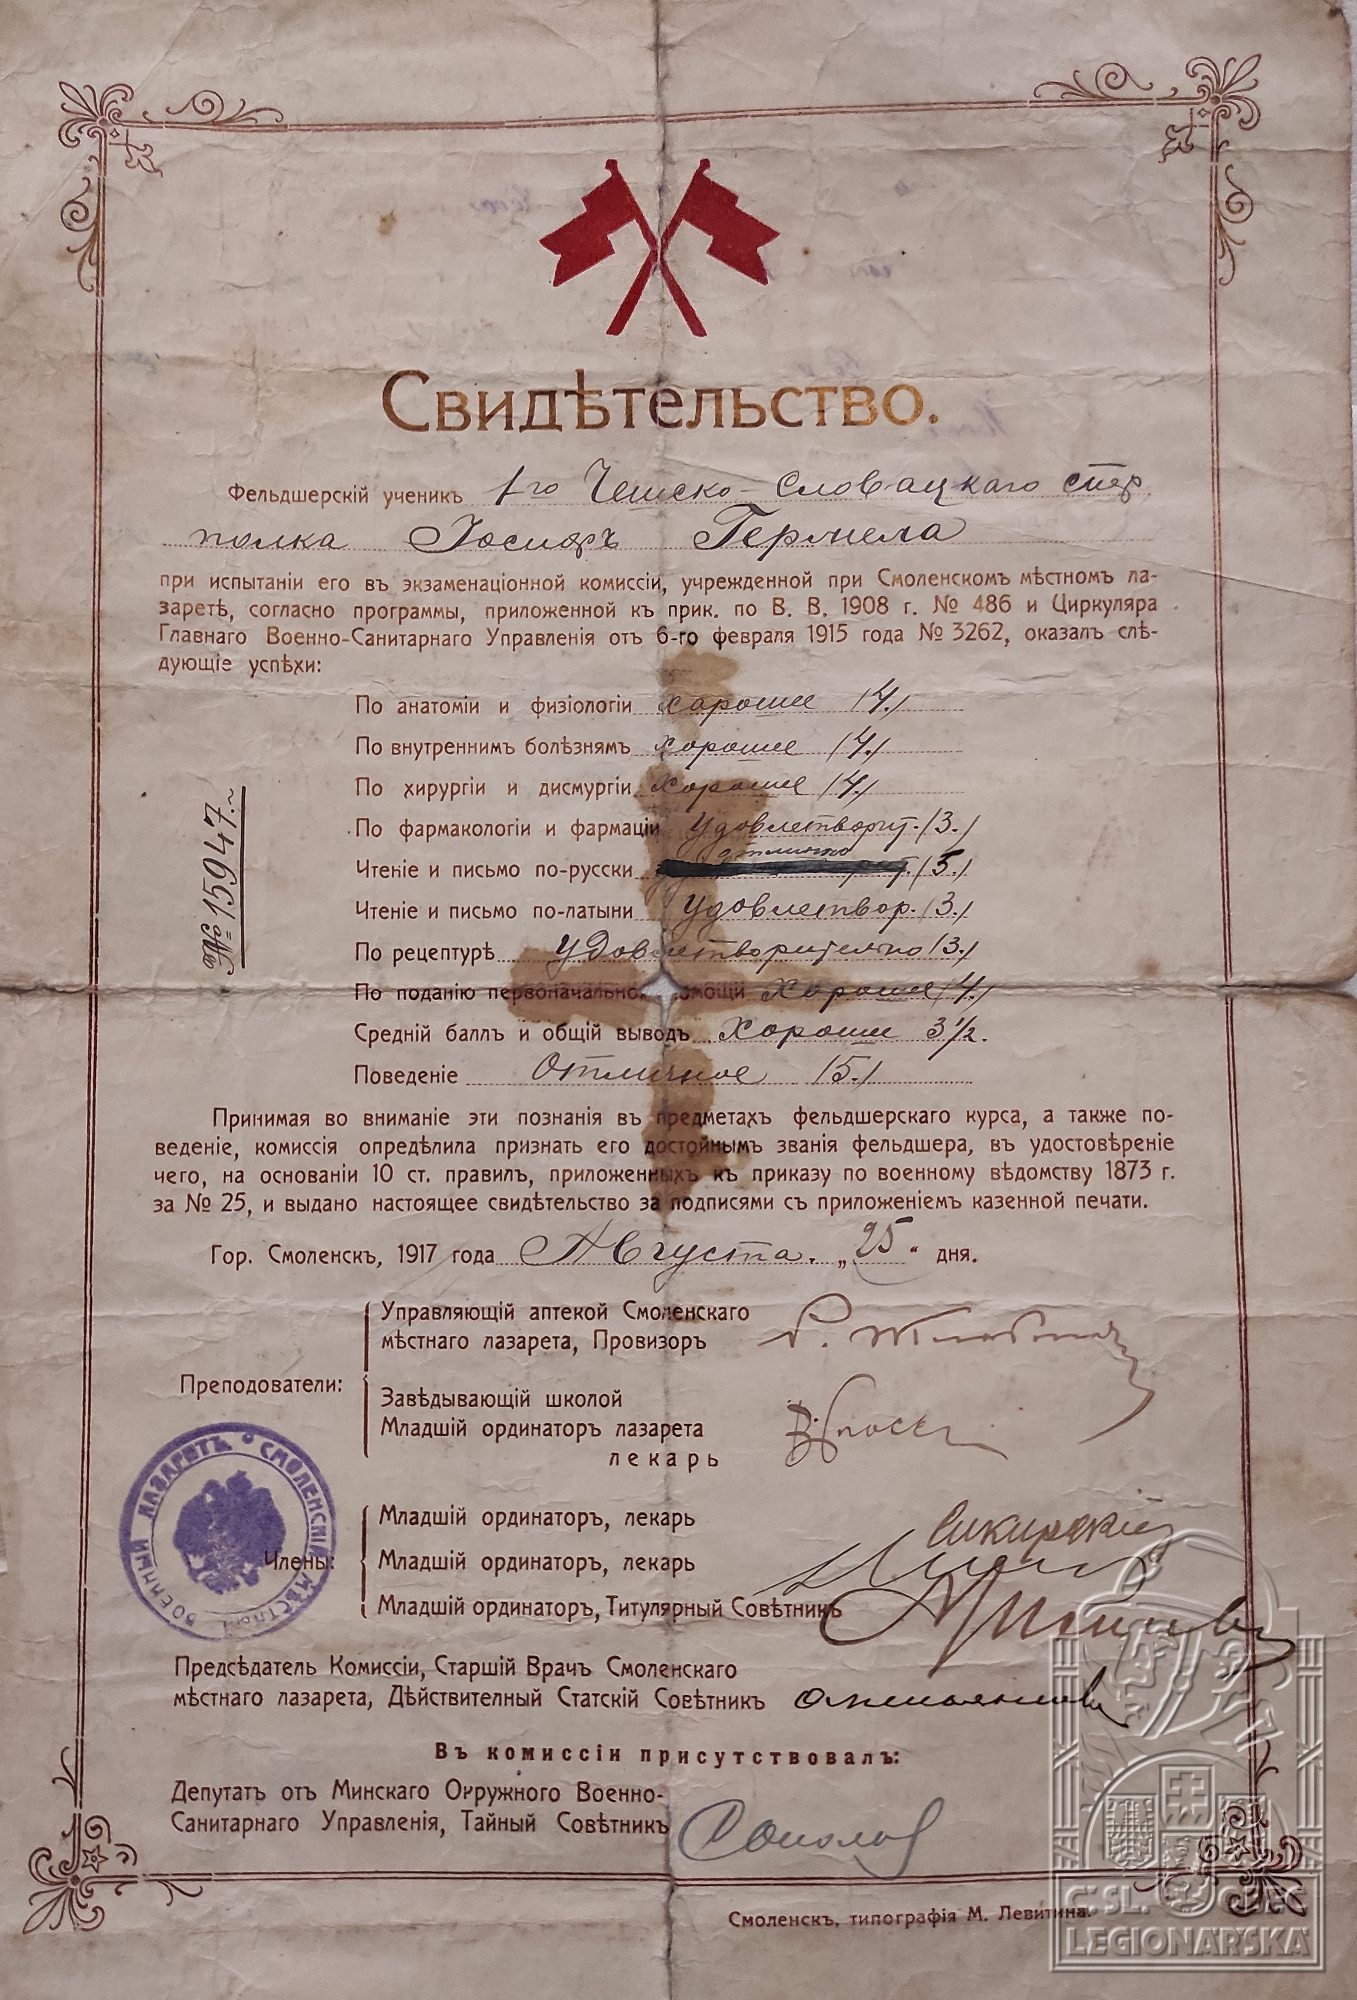 Свидѣтельство.
Фельдшерскій ученикъ 1го Чешско-Словацкаго стр.
полка Іосифъ Гермела
при испытаніи его въ экзаменаціонной комиссіи, учрежденной при Смоленскомъ мѣстномъ ла-
заретѣ, согласно программы, приложенной къ прик. по В. В. 1908 г. № 486 и Циркуляра
Главнаго Военно-Санитарнаго Управленія отъ 6-го февраля 1915 года № 3262, оказалъ слѣ-
дующіе успѣхи:
По анатоміи и физіологіи хорошие (4.)
По внутреннимъ болѣзнямъ хорошие (4.)
По хирургіи и дисмургіи хорошие (4)
По фармакологіи и фармаціи удовлетворит. (3.)
отлично
Чтеніе и письмо по-русски (5.)
Чтеніе и письмо по-латыни удовлетвор. (3.)
По рецептурѣ удовлетворительно (3.)
По поданію первоначальной помощи хорошие (4.)
Средній баллъ и общій выводъ хорошие 3 1/2.
Поведеніе Отличное (5.)
№ 15947.
Принимая во вниманіе эти познанія въ предметахъ фельдшерскаго курса, а также по-
веденіе, комиссія опредѣлила признать его достойнымъ званія фельдшера, въ удостовѣреніе
чего, на основаніи 10 ст. правилъ, приложенныхъ къ приказу по военному вѣдомству 1873 г.
за № 25, и выдано настоящее свидѣтельство за подписями съ приложеніемъ казенной печати.
Гор. Смоленскъ, 1917 года Августа. „25" дня.
Преподователи:
Управляющій аптекой Смоленскаго
мѣстнаго лазарета, Провизоръ
Завѣдывающій школой
Младшій ординаторъ лазарета
лекарь
Члены:
Младшій ординаторъ, лекарь Сикирскій
Младшій ординаторъ, лекарь
Младшій ординаторъ, Титулярный Совѣтникъ
ВОЕННЫЙ ЛАЗАРЕТЪ СМОЛЕНСКІЙ МѢСТНЫЙ
Предсѣдатель Комиссіи, Старшій Врачъ Смоленскаго
мѣстнаго лазарета, Дѣйствительный Статскій Совѣтникъ
Въ комиссіи присутствовалъ:
Депутатъ отъ Минскаго Окружного Военно-
Санитарнаго Управленія, Тайный Совѣтникъ Соколов
Смоленскъ, типографія М. Левитина.
ČSL. OBEC
LEGIONÁŘSKÁ